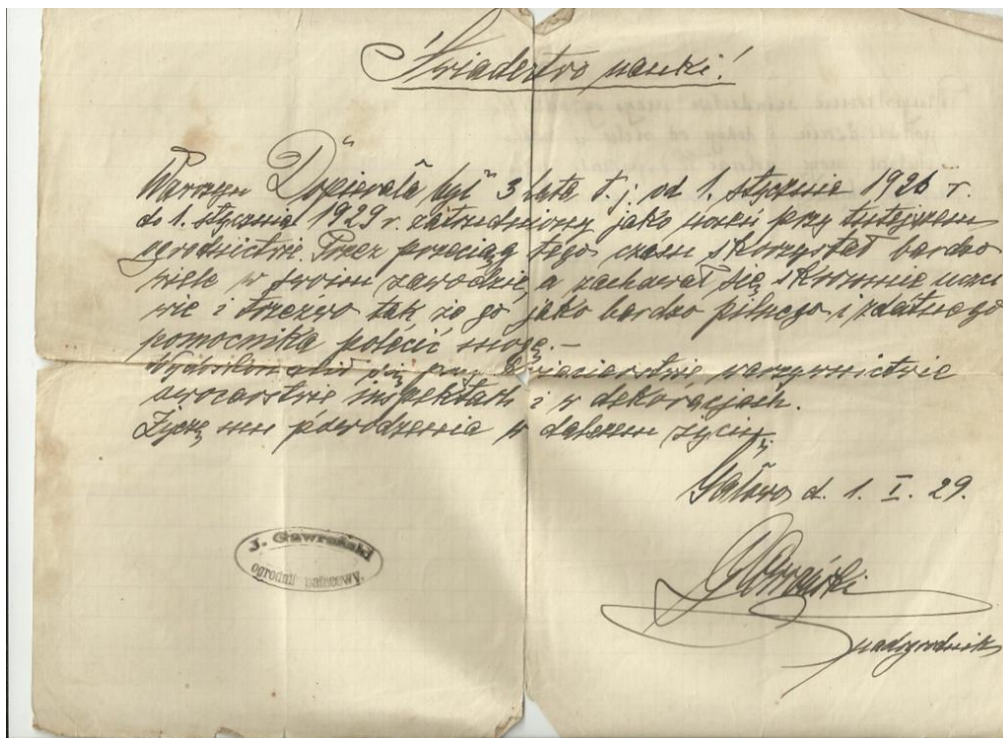 Świadectwo nauki!
Wawrzyn Dopierała był 3 lata t. j. od 1. stycznia 1926 r.
do 1. stycznia 1929 r. zatrudniony jako uczeń przy tutejszem
ogrodnictwie. Przez przeciąg tego czasu skorzystał bardzo
wiele w swoim zawodzie, a zachował się skromnie uczci
wie i trzeźwo tak że go jako bardzo pilnego i zdatnego
pomocnika polecić mogę.-
Wydoskonalił się przy kwieciarstwie warzywnictwie
owocarstwie inspektach i w dekoracjach.
Życzę mu powodzenia w dalszem życiu,
d. 1. I. 29.
J. Gawroński
ogrodnik pałacowy.
Gawroński
nadogrodnik